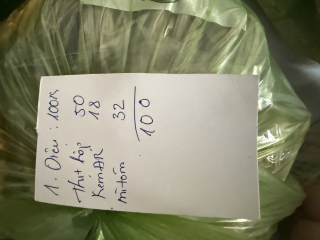 1. Diệu : 100k
thịt hộp 50
kem AR 18
mì tôm 32
100